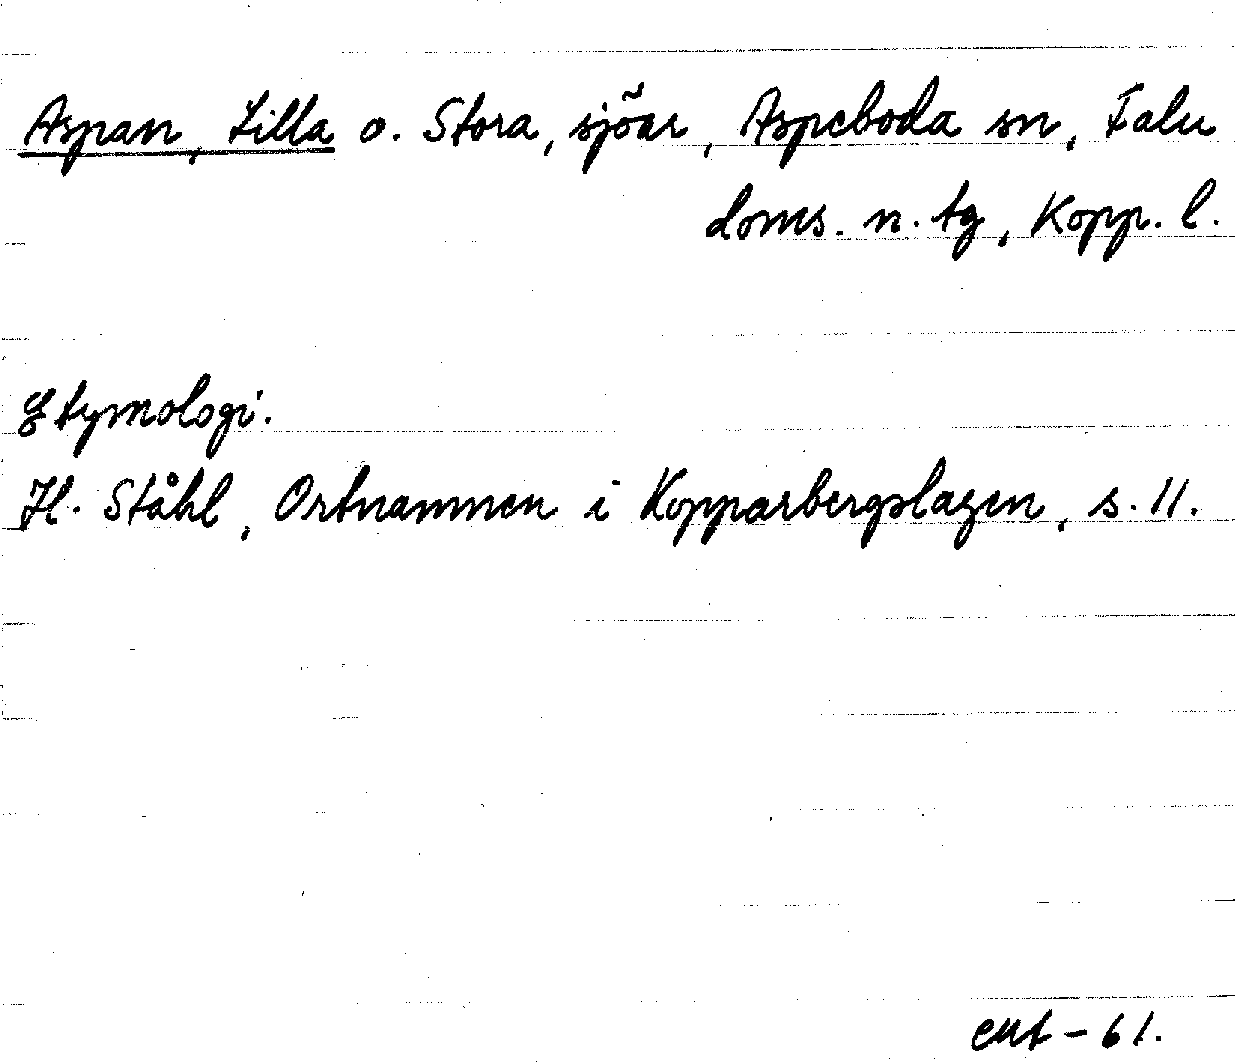 Aspan, Lilla o. Stora, sjöar, Aspeboda sn, Falu
doms. n. tg, Kopp. l.
Etymologi.
H. Ståhl, Ortnamnen i Kopparbergslagen, s. 11.
-61.